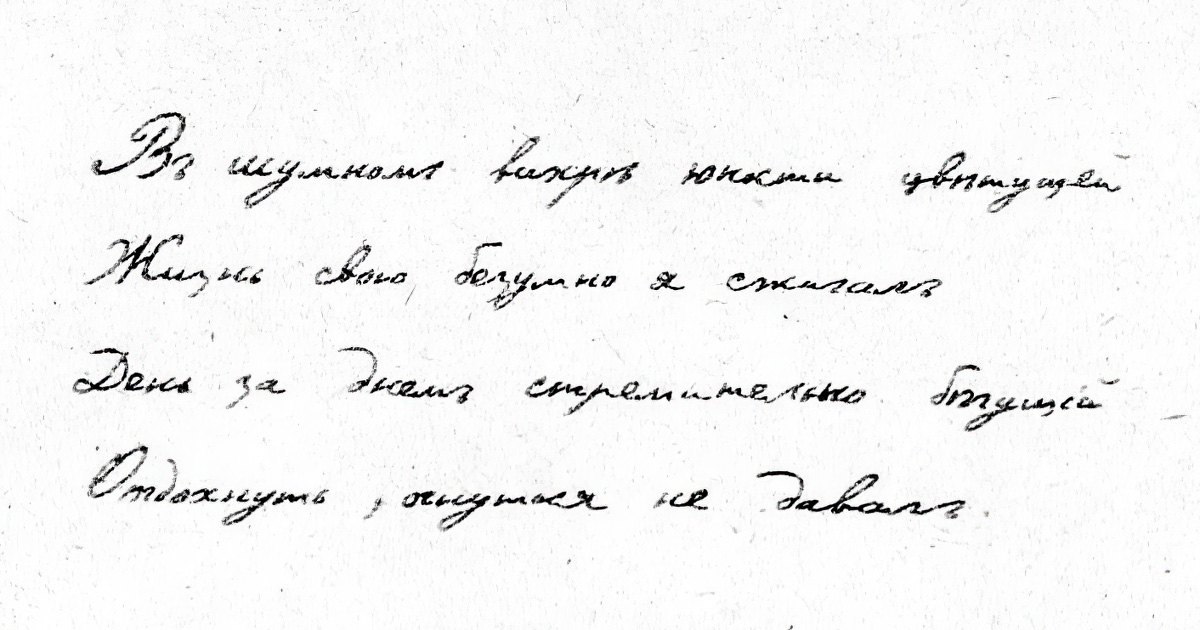 Въ шумномъ вихрѣ юности цвѣтущей
Жизнь свою безумно я сжигалъ
День за днемъ стремительно бѣгущій
Отдохнуть, очнуться не давалъ.